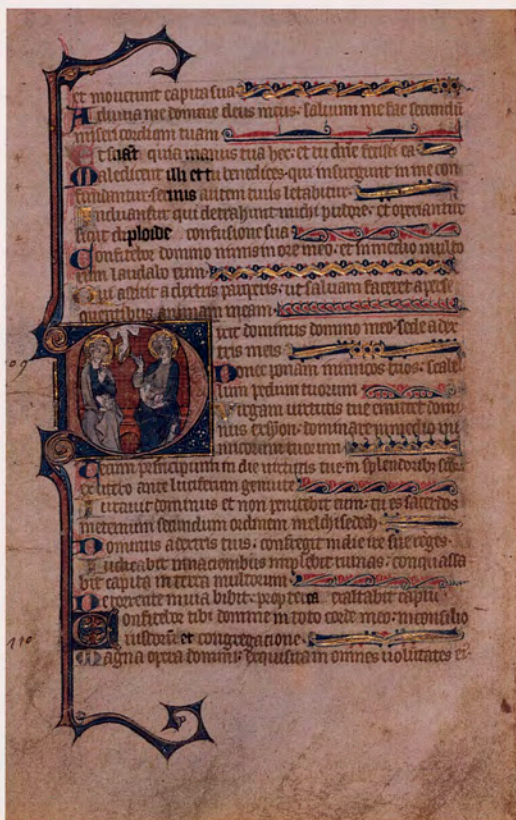 et mouerunt capita sua
Adiuua me domine deus meus: saluum me fac secundũ
misericordiam tuam
Et sciãt quia manus tua hec: et tu dñe fecisti eã
Maledicent illi et tu benedices: qui insurgunt in me con
fundantur: seruus autem tuus letabitur
Induantur qui detrahunt michi pudore: et operiantur
sicut diploide confusione sua
Confitebor domino nimis in ore meo: et in medio multo
rum laudabo eum
Qui astitit a dextris pauperis: ut saluam faceret a perse
quentibus animam meam
109
Dixit dominus domino meo: sede a dex
tris meis
Donec ponam inimicos tuos: scabel
lum pedum tuorum
Virgam uirtutis tue emittet domi
nus ex syon: dominare in medio ini
micorum tuorum
Tecum principium in die uirtutis tue in splendoribʒ
ex utero ante luciferum genui te
Iurauit dominus et non penitebit eum: tu es sacerdos
in eternum secundum ordinem melchisedech
Dominus a dextris tuis: confregit in die ire sue reges
Iudicabit in nacionibus implebit ruinas: conquassa
bit capita in terra multorum
De torrente in uia bibit: propterea exaltabit caput
110
Confitebor tibi domine in toto corde meo: in consilio
iustorum et congregacione
Magna opera domini: exquisita in omnes uoluntates ei